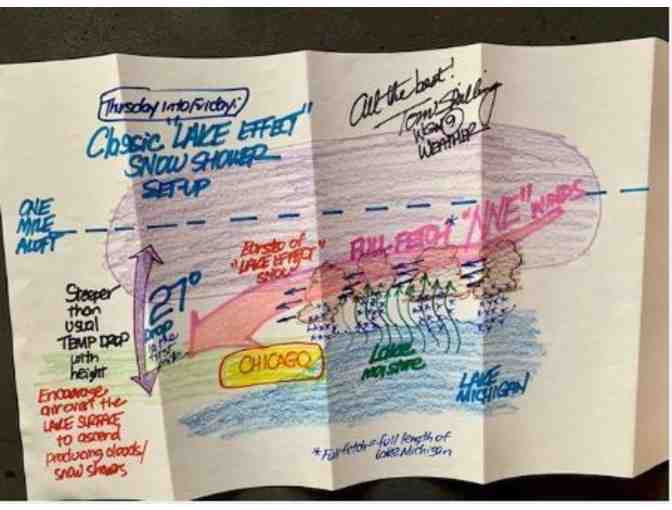 Thursday into Friday:
Classic "LAKE EFFECT"
SNOW SHOWER
SET-UP
All the best!
Tom Skilling
WGN 9
WEATHER
ONE
MILE
ALOFT
Bursts of
"LAKE EFFECT"
SNOW
FULL-FETCH* "NNE" WINDS
27°
Drop
in the
Steeper
than
usual
TEMP DROP
with
height
CHICAGO
Lake
moisture
LAKE
MICHIGAN
Encourages
air over the
LAKE SURFACE
to ascend
producing clouds/
snow showers
*Full fetch = full length of
Lake Michigan